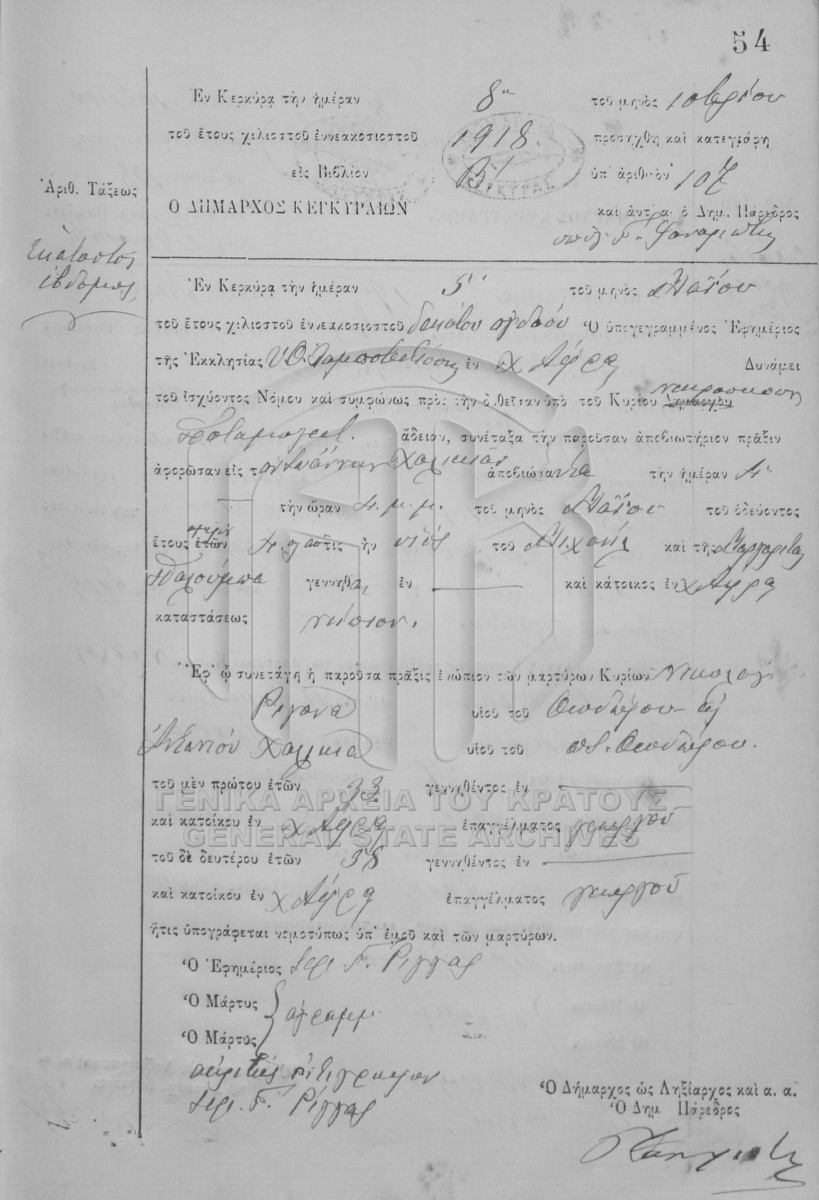 54
Ἐν Κερκύρᾳ τὴν ἡμέραν 8 τοῦ μηνὸς 10βρίου
τοῦ ἔτους χιλιοστοῦ ἐννεακοσιοστοῦ 1918 προσήχθη καὶ κατεγράφη
εἰς Βιβλίον Β′ ὑπ' ἀριθμὸν 107
Ἀριθ. Τάξεως
Ο ΔΗΜΑΡΧΟΣ ΚΕΡΚΥΡΑΙΩΝ καὶ ἀντ' α. ὁ Δημ. Πάρεδρος
Ἑκατοστὸς
ἕβδομος
Ἐν Κερκύρᾳ τὴν ἡμέραν 5 τοῦ μηνὸς Μαΐου
τοῦ ἔτους χιλιοστοῦ ἐννεακοσιοστοῦ δεκάτου ὀγδόου Ὁ ὑπογεγραμμένος Ἐφημέριος
τῆς Ἐκκλησίας ἐν χ Ἀφρα Δυνάμει
τοῦ ἰσχύοντος Νόμου καὶ συμφώνως πρὸς τὴν δοθεῖσαν ὑπὸ τοῦ Κυρίου Δημάρχου
Ποταμογειτ. ἄδειαν, συνέταξα τὴν παροῦσαν ἀποβιωτήριον πρᾶξιν
ἀφορῶσαν εἰς τὸν Ἰωάννην Χαλικιᾶν ἀποβιώσαντα τὴν ἡμέραν 4
τὴν ὥραν 4 μ.μ. τοῦ μηνὸς Μαΐου τοῦ ὁδεύοντος
ἔτους ἐτῶν 4 ὅστις ἦν υἱὸς τοῦ Μιχαὴλ καὶ τῆς Μαργαρίτας
γεννηθεὶς ἐν καὶ κάτοικος ἐν χ Ἀφρα
καταστάσεως νήπιον.
Ἐφ' ᾧ συνετάγη ἡ παροῦσα πρᾶξις ἐνώπιον τῶν μαρτύρων Κυρίων Νικολάου
Ριγανᾶ υἱοῦ τοῦ Θεοδώρου
Χαλικιᾶ υἱοῦ τοῦ Θεοδώρου.
τοῦ μὲν πρώτου ἐτῶν 33 γεννηθέντος ἐν
ΓΕΝΙΚΑ ΑΡΧΕΙΑ ΤΟΥ ΚΡΑΤΟΥΣ
καὶ κατοίκου ἐν χ Ἀφρα ἐπαγγέλματος γεωργοῦ
GENERAL STATE ARCHIVES
τοῦ δὲ δευτέρου ἐτῶν 38 γεννηθέντος ἐν
καὶ κατοίκου ἐν χ Ἀφρα ἐπαγγέλματος γεωργοῦ
ἥτις ὑπογράφεται νομοτύπως ὑπ' ἐμοῦ καὶ τῶν μαρτύρων.
Ὁ Ἐφημέριος Ἱερ. Γ. Ρίγγας
Ὁ Μάρτυς
ἀγράμμ.
Ὁ Μάρτυς
ἀκριβὲς ἀντίγραφον
Ἱερ. Γ. Ρίγγας
Ὁ Δήμαρχος ὡς Ληξίαρχος καὶ α. α.
Ὁ Δημ Πάρεδρος